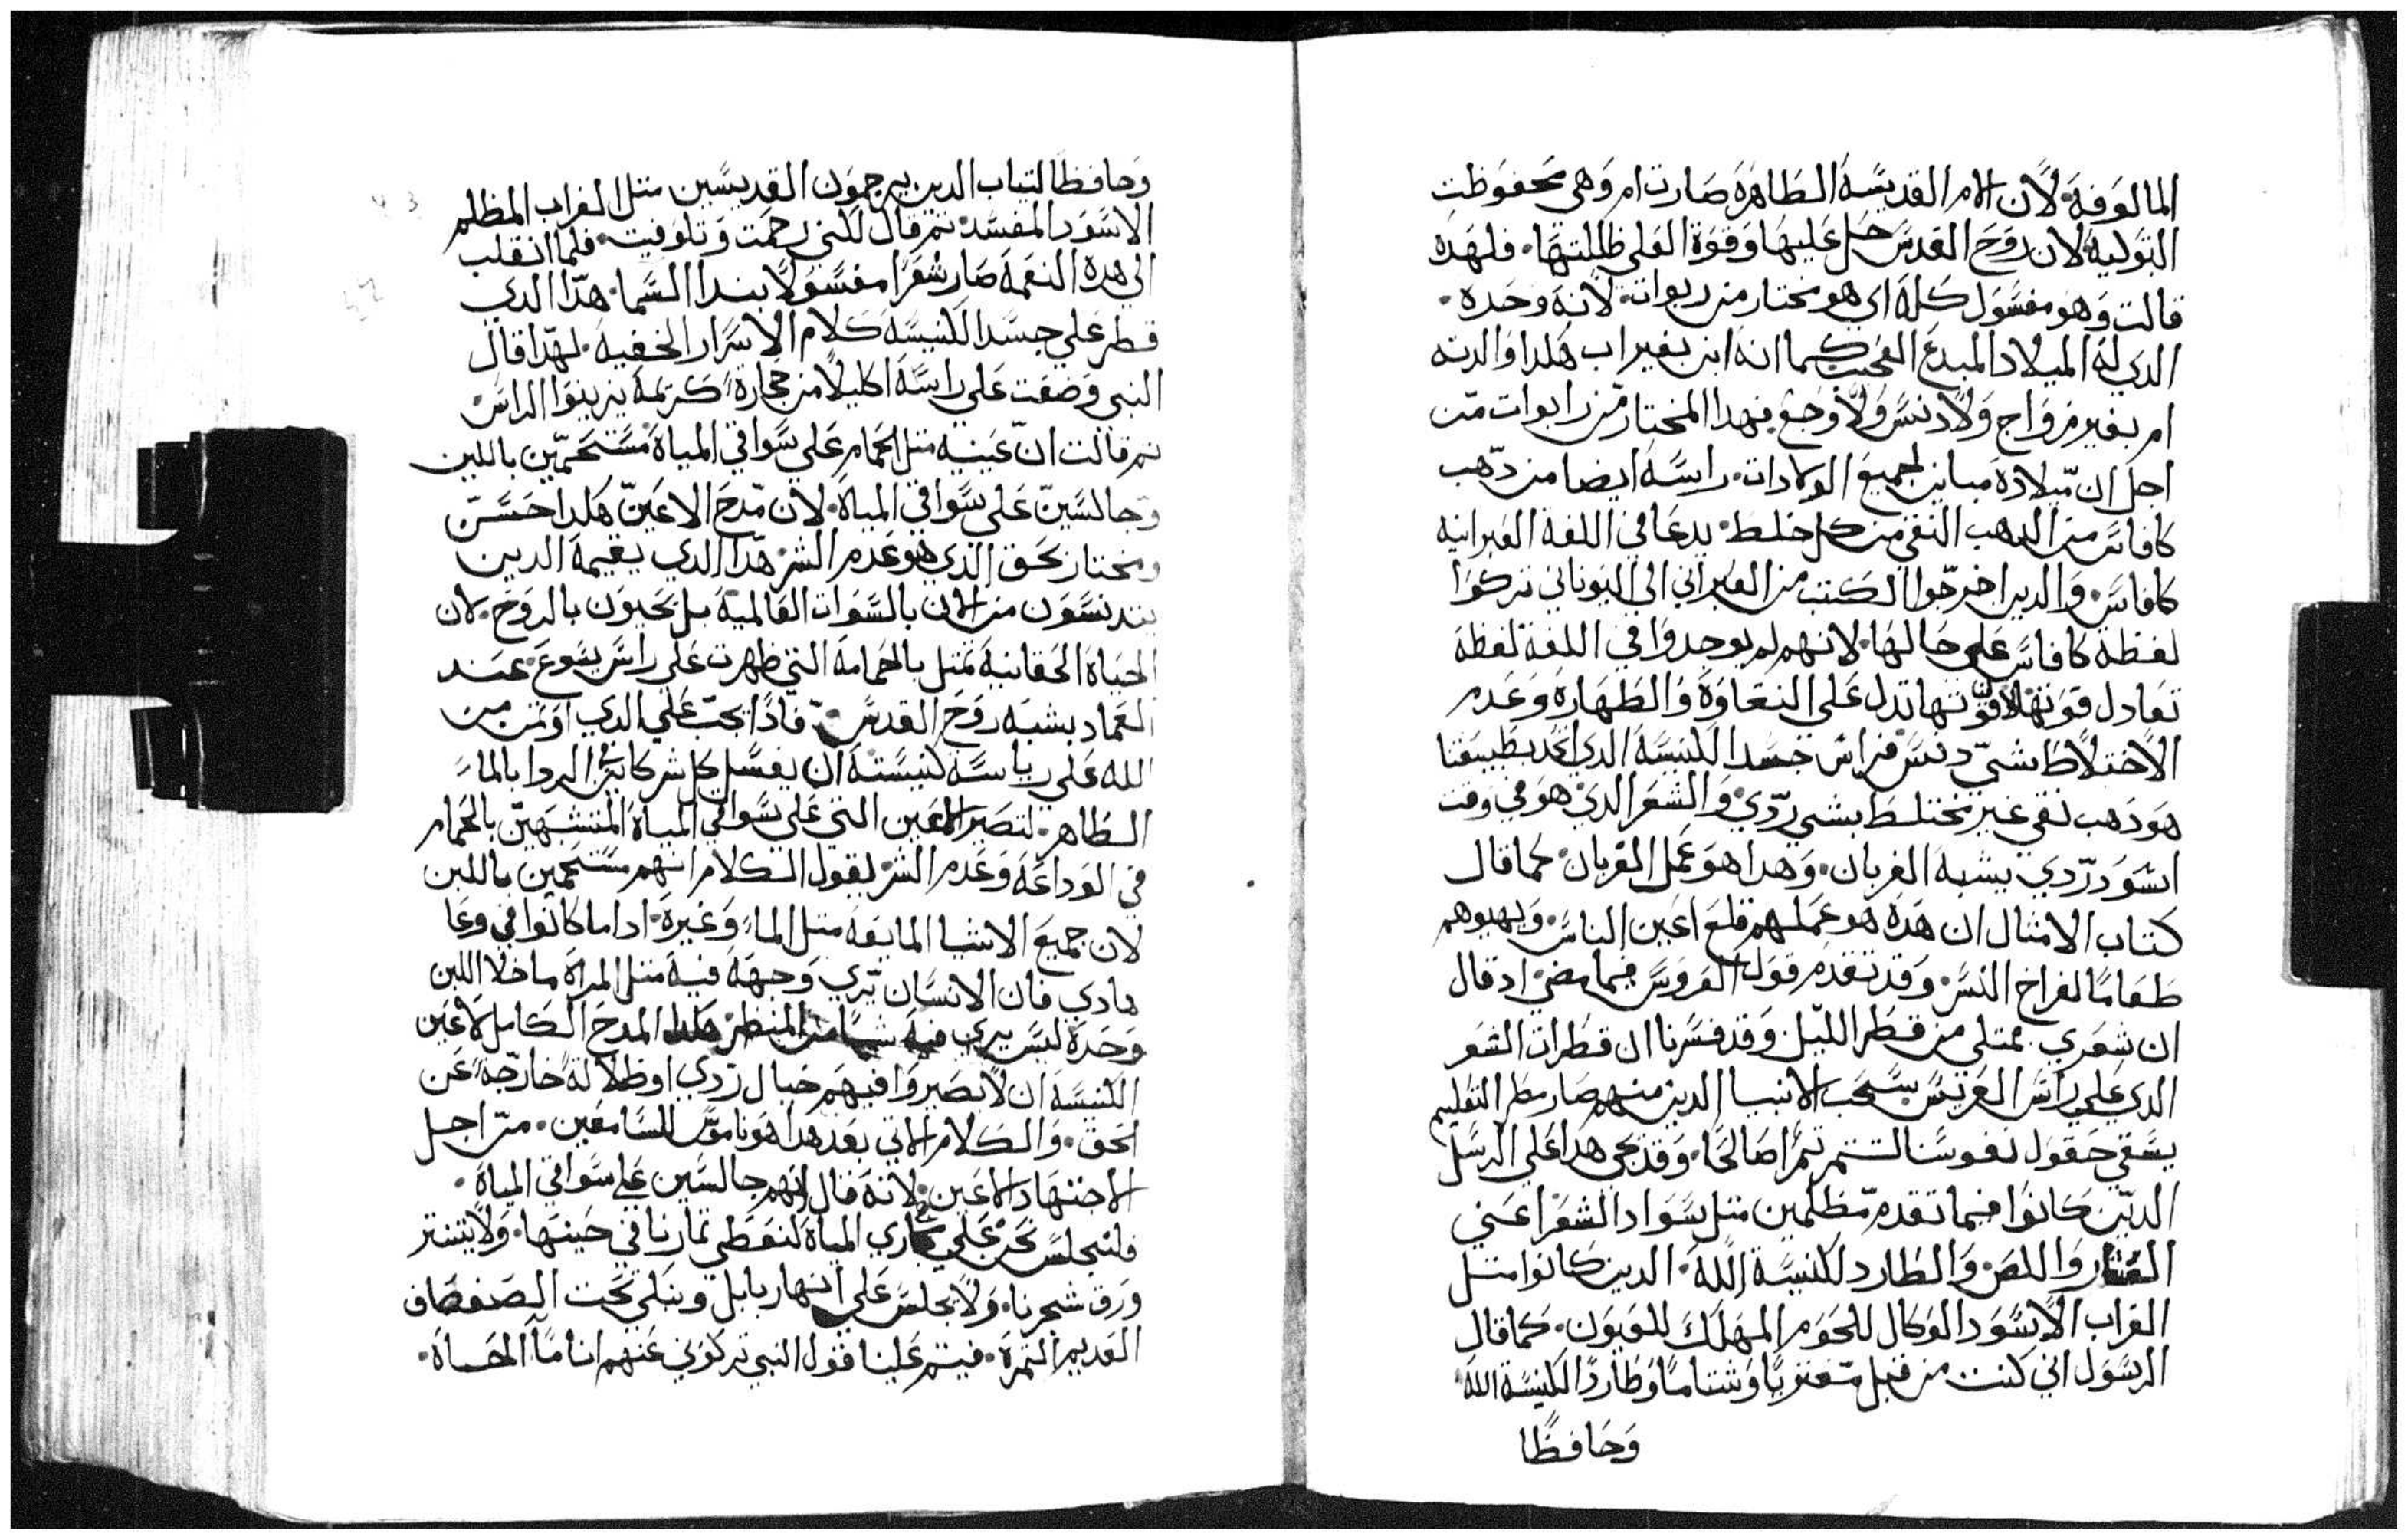 المالوفة. لان الام القديسة الطاهرة صارت ام وهي محفوظت
التولية لان روح القدس حل عليها وقوة العلي ظللتها. فلهده
قالت وهو مغسول كله اي هو مختار من ربوات. لانه وحده.
الدي له الميلاد المبدع العجيب كما انه ابن بغير اب هكدا والدته
ام بغير زواج ولا دنس ولا وجع. فهدا المختار من رابوات من
اجل ان ميلاده مباين لجميع الولادات. راسه ايضا من دهب
كافاس من الدهب النقي من كل خلط. يدعا في اللغة العبرانية
كافاس. والدين اخرجوا الكتب من العبراني الى اليوناني تركوا
لفظة كافاس على حالها. لانهم لم يوجدوا في اللغة لفظة
تعادل قوتها لان قوتها تدل على النقاوة والطهارة وعدم
الاختلاط بشي دنس فراس جسد الكنيسة الدي بطبيعتنا
هو دهب نقي غير مختلط بشي ردي. والشعر الدي هو في وقت
اسود ردي يشبه الغربان. وهدا هو عمل الغربان. كما قال
كتاب الامثال ان هده هو عملهم قلع اعين الناس. ويهبوهم
طعاما لفراخ النسر. وقد تقدم قول العروس فيما مضي اد قال
ان شعري ممتلي من قطر الليل وقد فسرنا ان قطرات الشعر
الدي على راس العريس بسحب الانبيا الدين منهم صار مطر التعليم
يسقي حقول نفوسنا لتتمر تمرا صالحا. وقد يجي هدا على الرسل
الدين كانوا فيما تقدم مظلمين متل سواد الشعر اعني
العشار واللص. والطارد لكنيسة الله. الدين كانوا متل
الغراب الاسود الوكال للحوم المهلك للعيون. كما قال
الرسول اني كنت من قبل مفتريا وشتاما وطاردا لكنيسة الله
وحافظا
وحافظا لتياب الدين يرجمون القديسين متل الغراب المظلم
الاسود المفسد. تم قال لكني رحمت وتلوفيت. فلما انقلب
الى هده النعمة صار شعرا مغسولا بندا السما. هدا الدي
قطر على جسد الكنيسة كلام الاسرار الخفية. لهدا قال
النبي وضعت على راسه اكليلا من حجارة كريمة يزينوا الراس
تم قالت ان عينيه متل الحمام على سواقي المياه مستحمين باللبن
وجالسين على سواقي المياه. لان مدح الاعين هكدا حسن
ومختار بحق الذي هو عدم الشر هدا الدي يقيمه الدين
يتدنسون من الان بالشهوات العالمية بل يحيون بالروح. لان
الحياة الحقانية تمتل بالحمامة التي ظهرت على راس يسوع عند
العماد بشبه روح القدس. فادا يجب على الدي اوتمن من
الله على رياسة كنيسته ان يغسل كل شر كاين الردا بالما
الطاهر. لتصير الاعين التي على سواقي المياه المتشبهين بالحمام
في الوداعة وعدم الشر. يقول الكلام انهم مستحمين باللبن
لان جميع الاشيا المايعة متل الما وغيره. ادا ما كانوا في وعا
هادي فان الانسان يري وجهه فيه متل المراة ما خلا اللبن
وحده ليس يري فيه شيا من المنظر. هكدا المدح الكامل لاعين
الكنيسة ان لا تصيروا فيهم خيال ردي او ظلالة خارجة عن
الحق. والكلام الاتي بعد هدا هو ناموس للسامعين. من اجل
الاجتهاد الاعين. لانه قال انهم جالسين على سواقي المياه.
فلنجلس نحن على مجاري المياه لنعطي تمارنا في حينها. ولا ينتتر
ورق شجرنا. ولا نجلس على انهار بابل ونبكي تحت الصفصاف
العديم التمرة. فيتم علينا قول النبي تركوني عنهم انا ما الحياة.